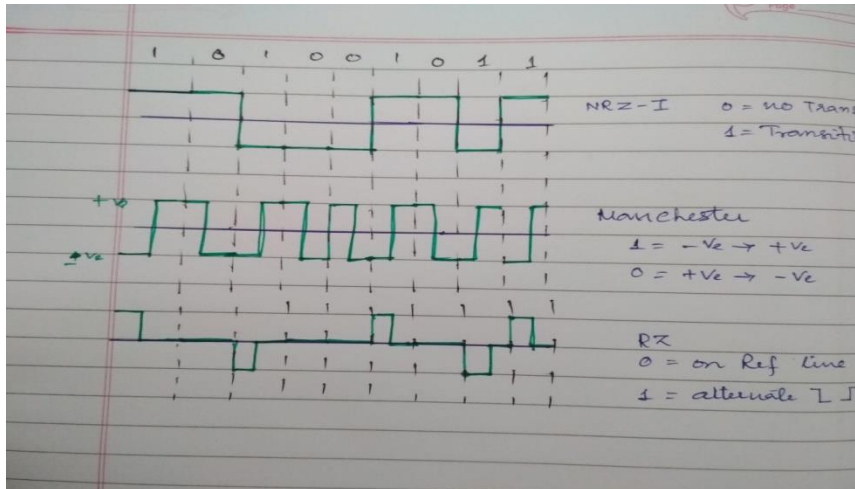 Page
1 0 1 0 0 1 0 1 1
NRZ-I 0 = no Trans
1 = Transiti
+ve
Manchester
-ve 1 = -Ve → +Ve
0 = +Ve → -Ve
RZ
0 = on Ref line
1 = alternate